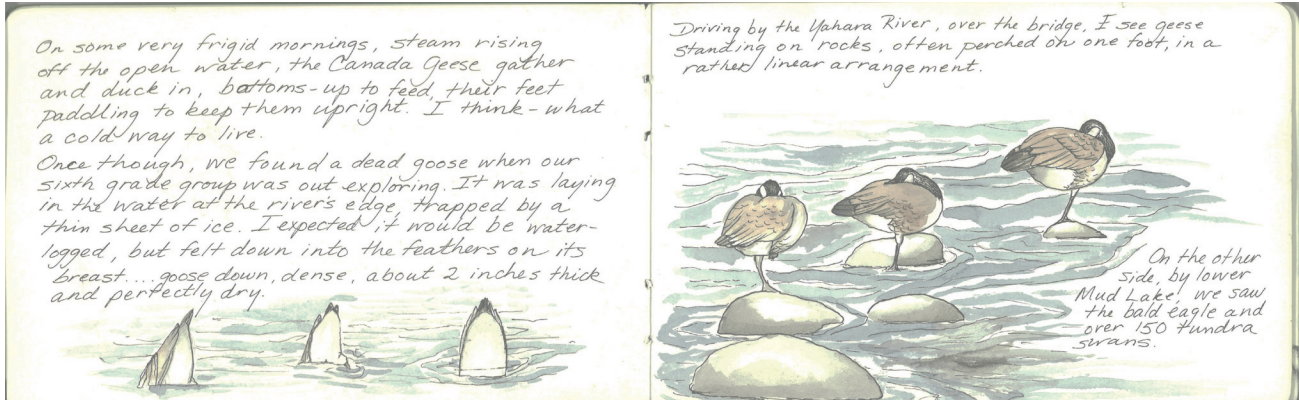 On some very frigid mornings, steam rising
off the open water, the Canada Geese gather
and duck in, bottoms-up to feed, their feet
paddling to keep them upright. I think - what
a cold way to live.
Once though, we found a dead goose when our
sixth grade group was out exploring. It was laying
in the water at the river's edge, trapped by a
thin sheet of ice. I expected it would be water-
logged, but felt down into the feathers on its
breast.... goose down, dense, about 2 inches thick
and perfectly dry.
Driving by the Yahara River, over the bridge, I see geese
standing on rocks, often perched on one foot, in a
rather linear arrangement.
On the other
side, by lower
Mud Lake, we saw
the bald eagle and
over 150 tundra
swans.